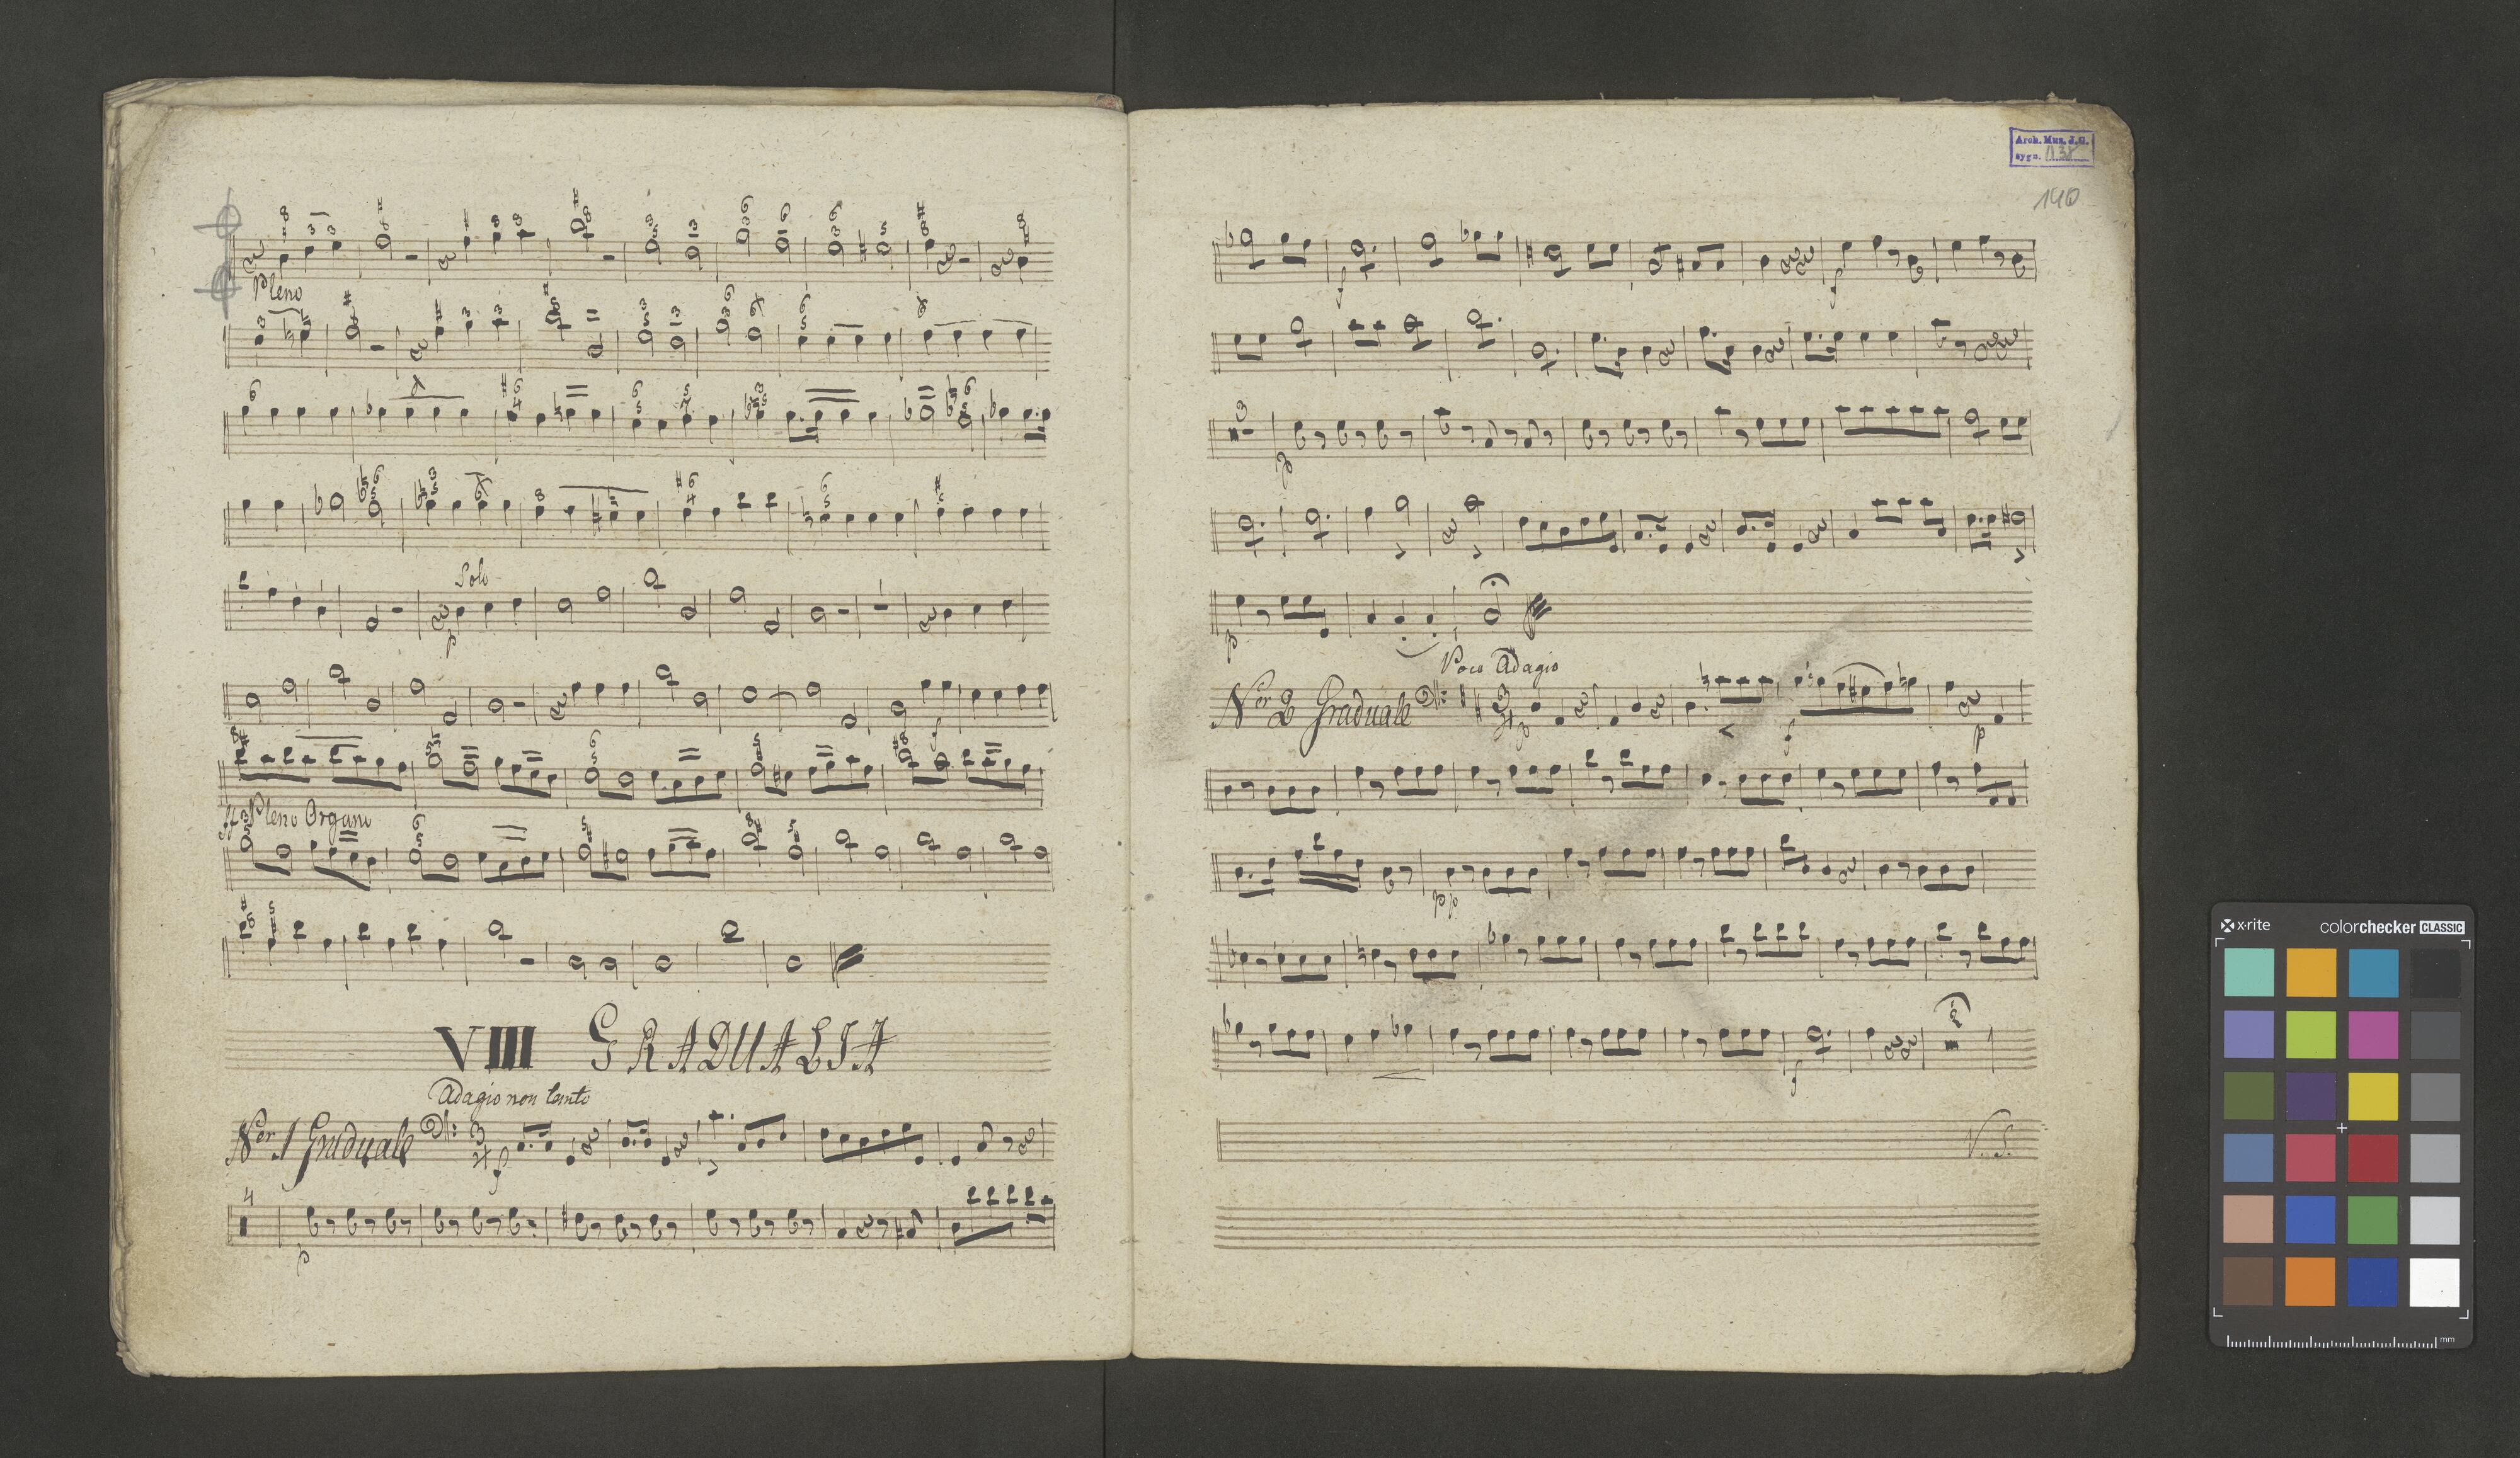 Pleno
Solo
p
f
ff Pleno Organo
VIII GRADUALIA
Adagio non tanto
Ner. 1 Graduale
f
4
p
Arch. Muz. J.G.
sygn.
140
f
f
3
p
p
Poco Adagio
Ner. 2 Graduale
p
f
p
pp
f
V. S.
x-rite
colorchecker CLASSIC
mm